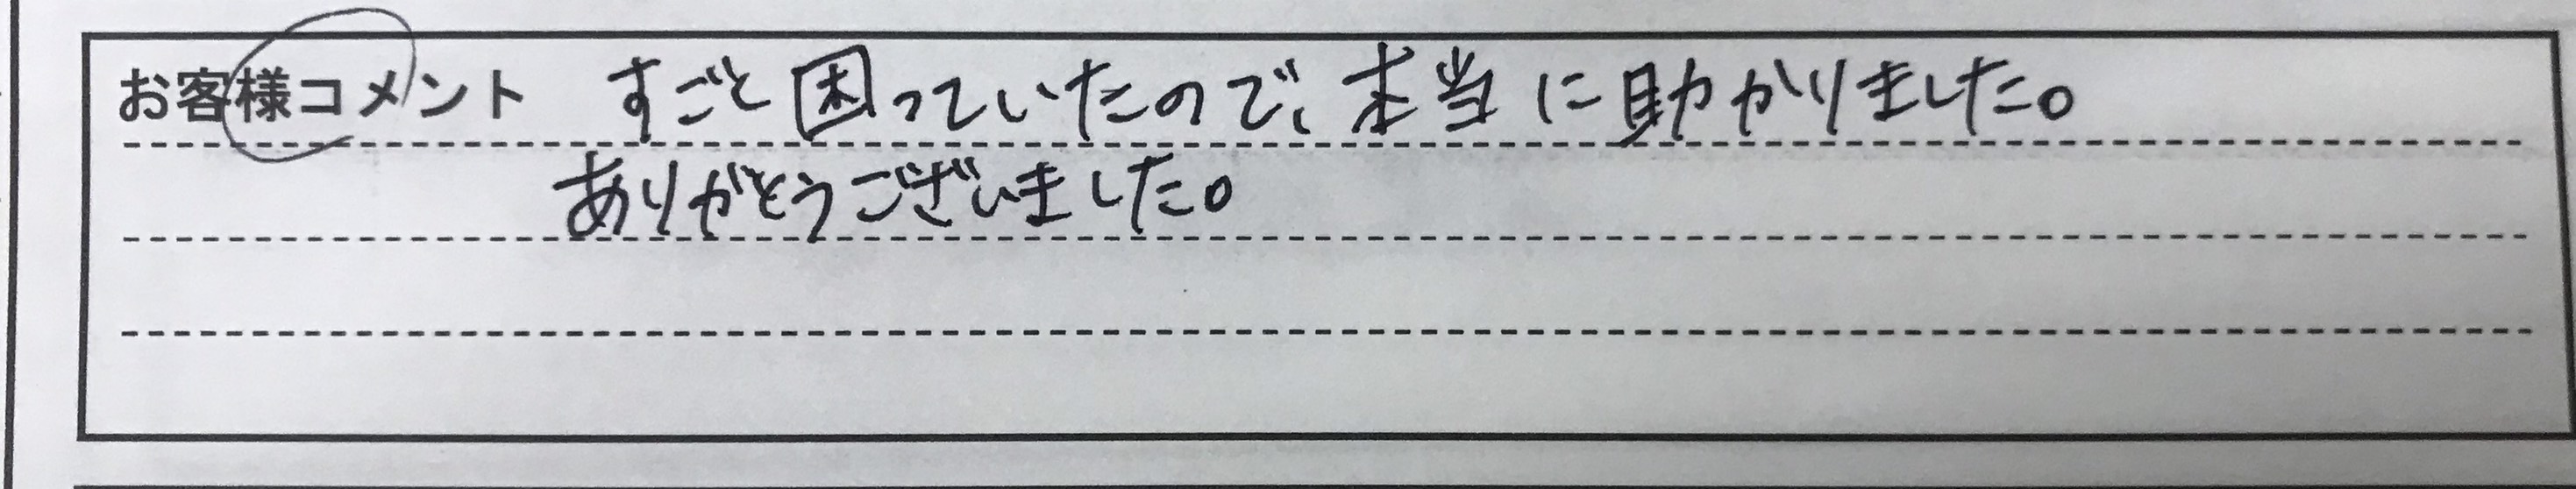 お客様コメント すごと困っていたので、本当に助かりました。
ありがとうございました。